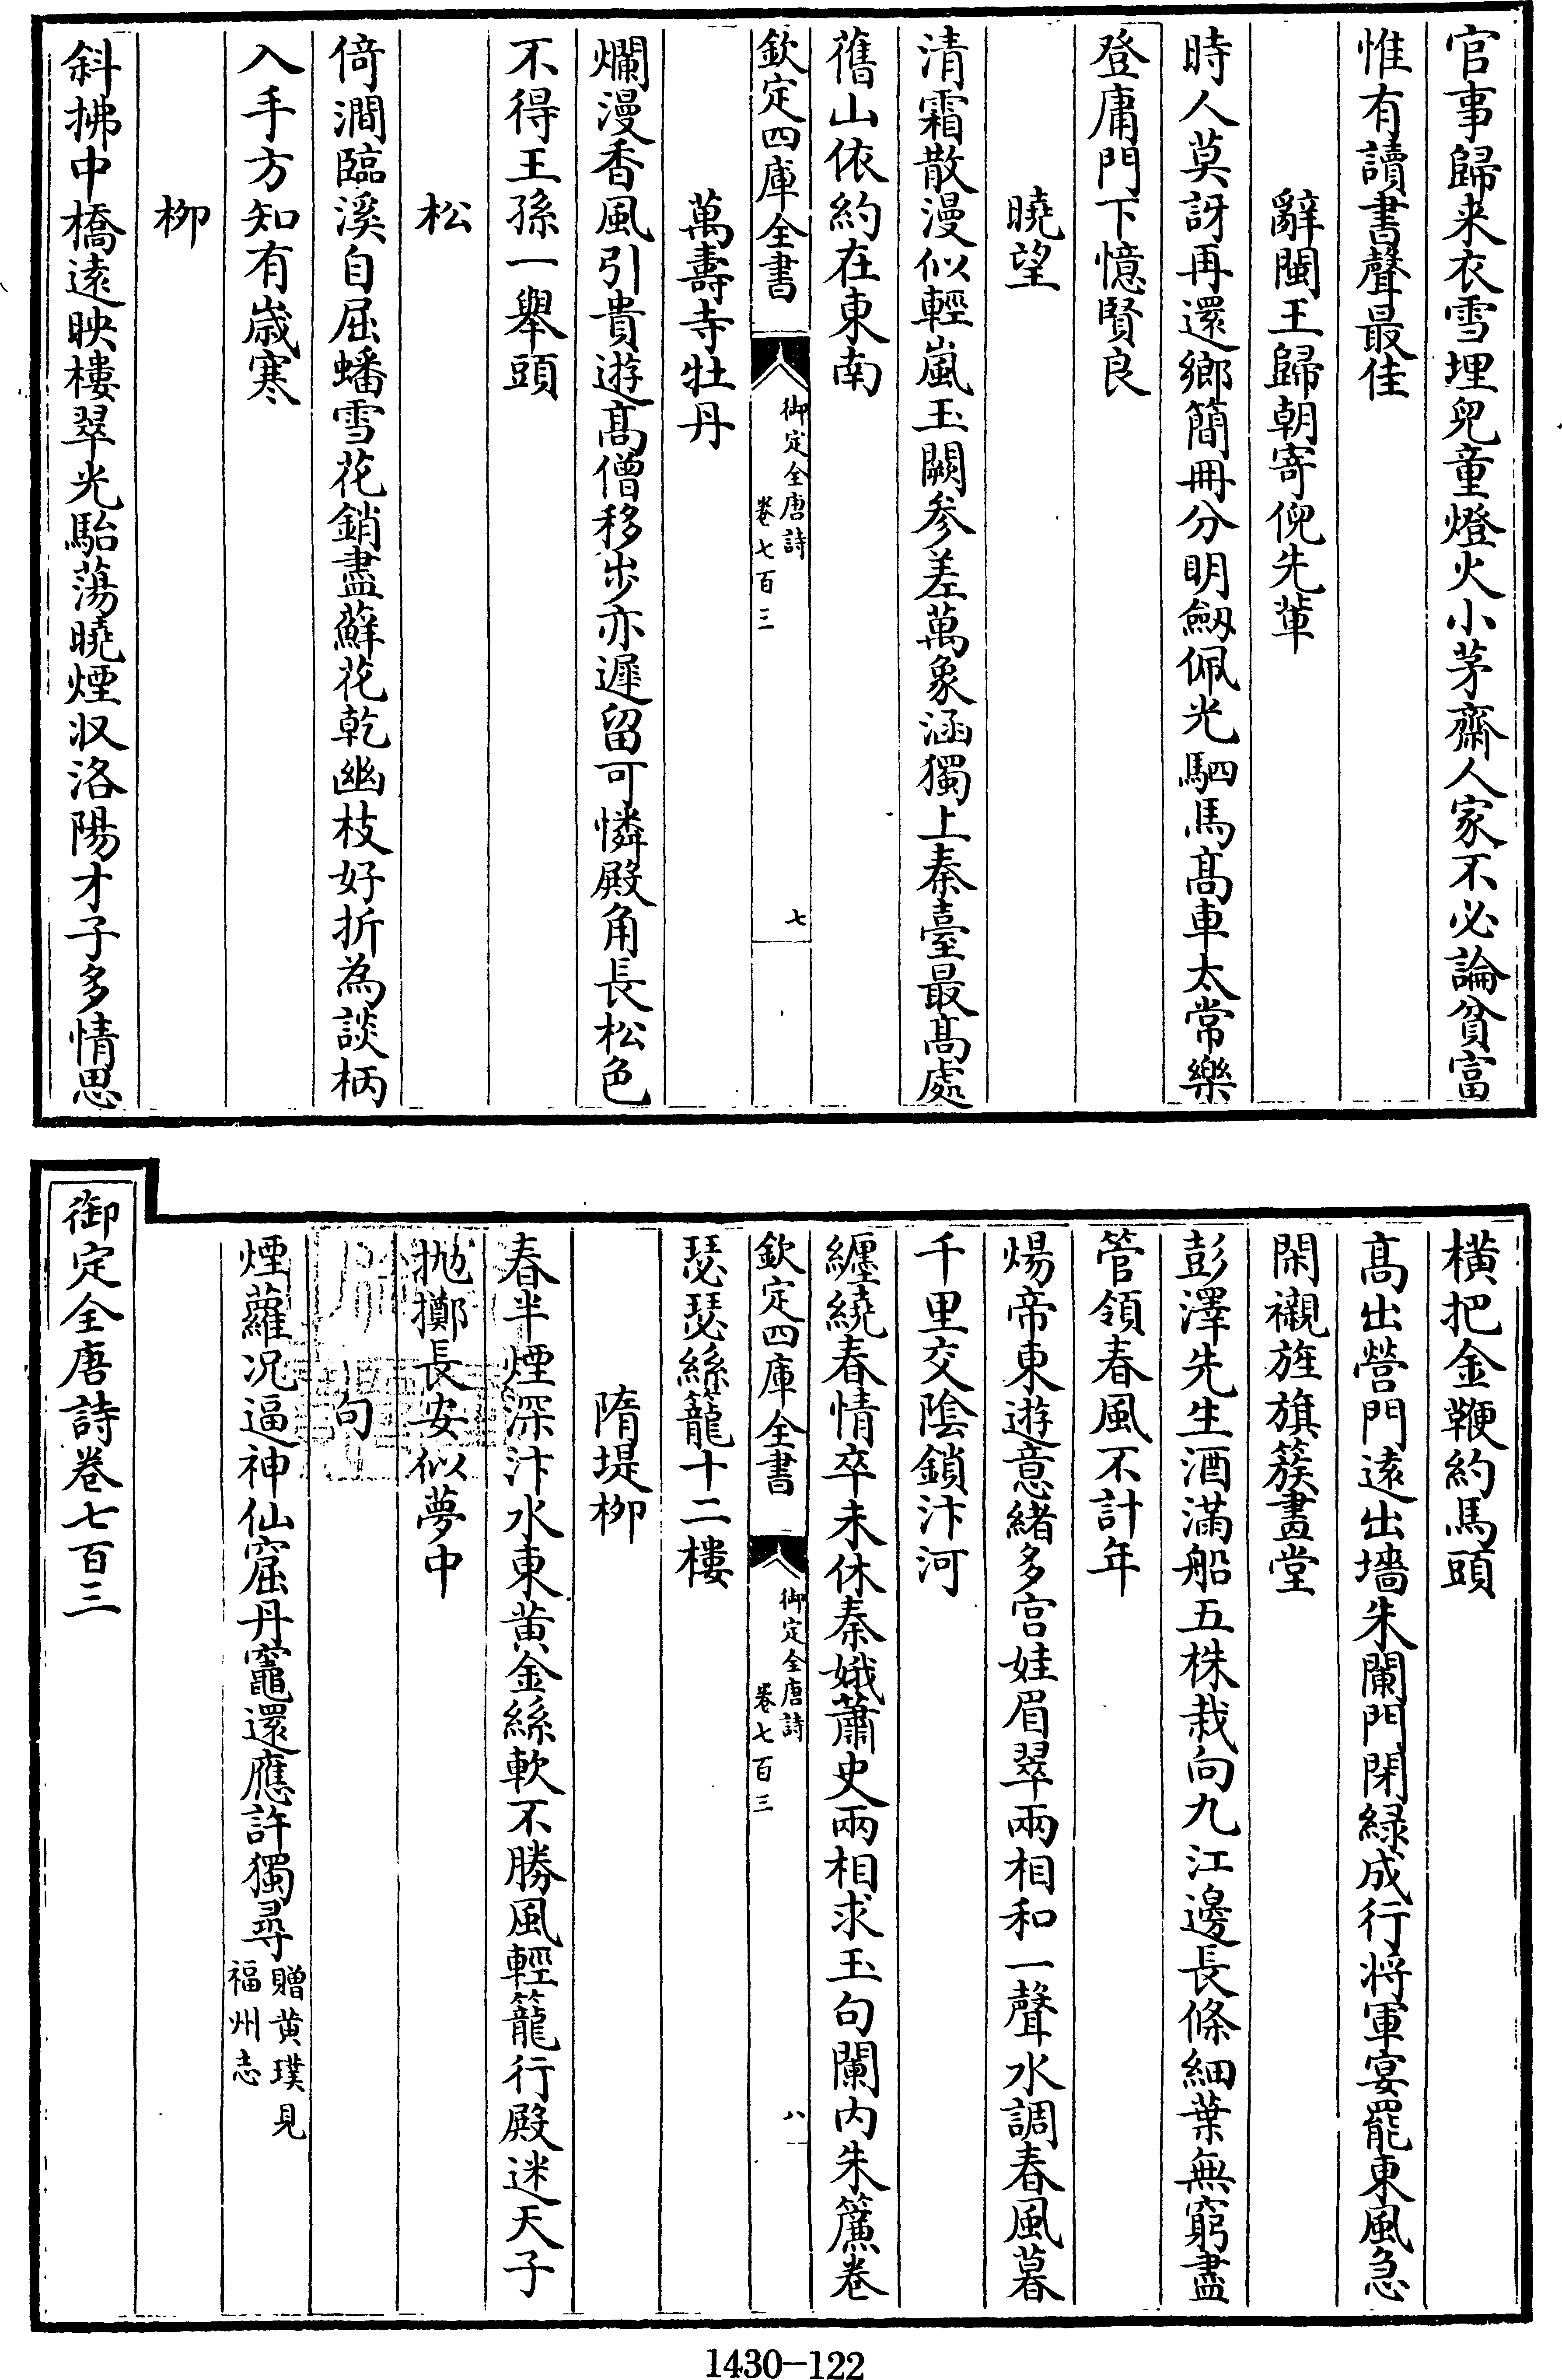 官事歸来衣雪埋兒童燈火小茅齋人家不必論貧富
惟有讀書聲最佳
辭閩王歸朝寄倪先軰
時人莫訝再還鄉簡冊分明劔佩光駟馬髙車太常樂
登庸門下憶賢良
曉望
清霜散漫似輕嵐玉闕參差萬象涵獨上秦臺最髙處
舊山依約在東南
欽定四庫全書
御定全唐詩
卷七百三
七
萬壽寺牡丹
爛漫香風引貴遊髙僧移步亦遲留可憐殿角長松色
不得王孫一舉頭
松
倚澗臨溪自屈蟠雪花銷盡蘚花乾幽枝好折為談柄
入手方知有歲寒
柳
斜拂中橋遠映樓翠光駘蕩曉煙収洛陽才子多情思
橫把金鞭約馬頭
髙出營門遠出墻朱闌門閉緑成行將軍宴罷東風急
閑襯旌旗簇畫堂
彭澤先生酒滿船五株栽向九江邊長條細葉無窮盡
管領春風不計年
煬帝東遊意緒多宫娃眉翠兩相和一聲水調春風暮
千里交隂鎖汴河
纒繞春情卒未休秦娥蕭史兩相求玉句闌内朱簾卷
瑟瑟絲籠十二樓
欽定四庫全書
御定全唐詩
卷七百三
八
隋堤柳
春半煙深汴水東黄金絲軟不勝風輕籠行殿迷天子
抛擲長安似夢中
句
煙蘿况逼神仙窟丹竈還應許獨尋贈黄璞見
福州志
御定全唐詩卷七百三
1430-122